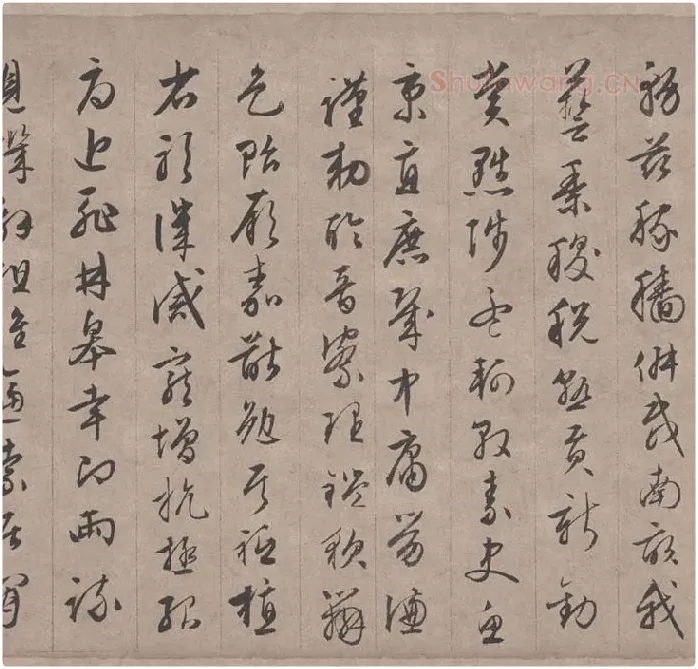 務茲稼穡俶載南畝我
藝黍稷稅熟貢新勸
賞黜陟孟軻敦素史魚
秉直庶幾中庸勞謙
謹勑聆音察理鑑貌辨
色貽厥嘉猷勉其祗植
省躬譏誡寵增抗極殆
辱近恥林皋幸即兩疏
見機解組誰逼索居閑
Shufawang.CN